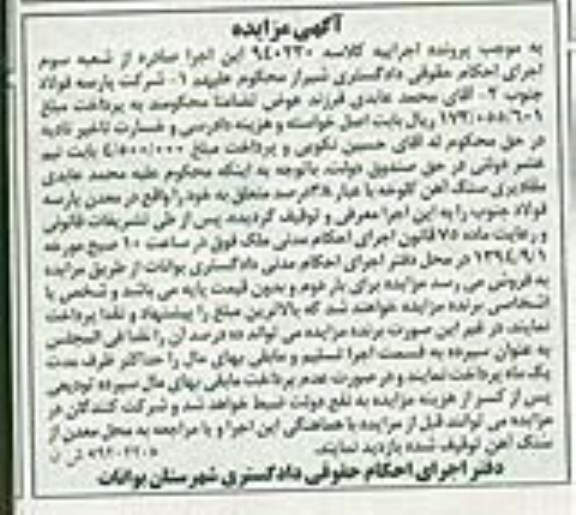 آگهی مزایده
به موجب پرونده اجراییه کلاسه ۹۴۰۲۳۰ این اجرا صادره از شعبه سوم
اجرای احکام حقوقی دادگستری شیراز محکوم علیهم ۱- شرکت پارسه فولاد
جنوب ۲- آقای محمد عابدی فرزند عوض تضامنا محکومند به پرداخت مبلغ
۱۷۳/۰۵۵/۶۰۱ ریال بابت اصل خواسته و هزینه دادرسی و خسارت تاخیر تادیه
در حق محکوم له آقای حسین نکویی و پرداخت مبلغ ۴/۵۰۰/۰۰۰ بابت نیم
عشر دولتی در حق صندوق دولت. باتوجه به اینکه محکوم علیه محمد عابدی
مقادیری سنگ آهن کلوخه با عیار ۳۸درصد متعلق به خود را واقع در معدن پارسه
فولاد جنوب را به این اجرا معرفی و توقیف گردیده. پس از طی تشریفات قانونی
و رعایت ماده ۷۵ قانون اجرای احکام مدنی ملک فوق در ساعت ۱۰ صبح مورخه
۱۳۹۴/۹/۱ در محل دفتر اجرای احکام مدنی دادگستری بوانات از طریق مزایده
به فروش می رسد مزایده برای بار دوم و بدون قیمت پایه می باشد و شخص یا
اشخاصی برنده مزایده خواهند شد که بالاترین مبلغ را پیشنهاد و نقدا پرداخت
نمایند. در غیر این صورت برنده مزایده می تواند ده درصد آن را نقدا فی المجلس
به عنوان سپرده به قسمت اجرا تسلیم و مابقی بهای مال را حداکثر ظرف مدت
یک ماه پرداخت نمایند و در صورت عدم پرداخت مابقی بهای مال سپرده تودیعی
پس از کسر از هزینه مزایده به نفع دولت ضبط خواهد شد و شرکت کنندگان در
مزایده می توانند قبل از مزایده با هماهنگی این اجرا و یا مراجعه به محل معدن از
سنگ آهن توقیف شده بازدید نمایند.
دفتر اجرای احکام حقوقی دادگستری شهرستان بوانات